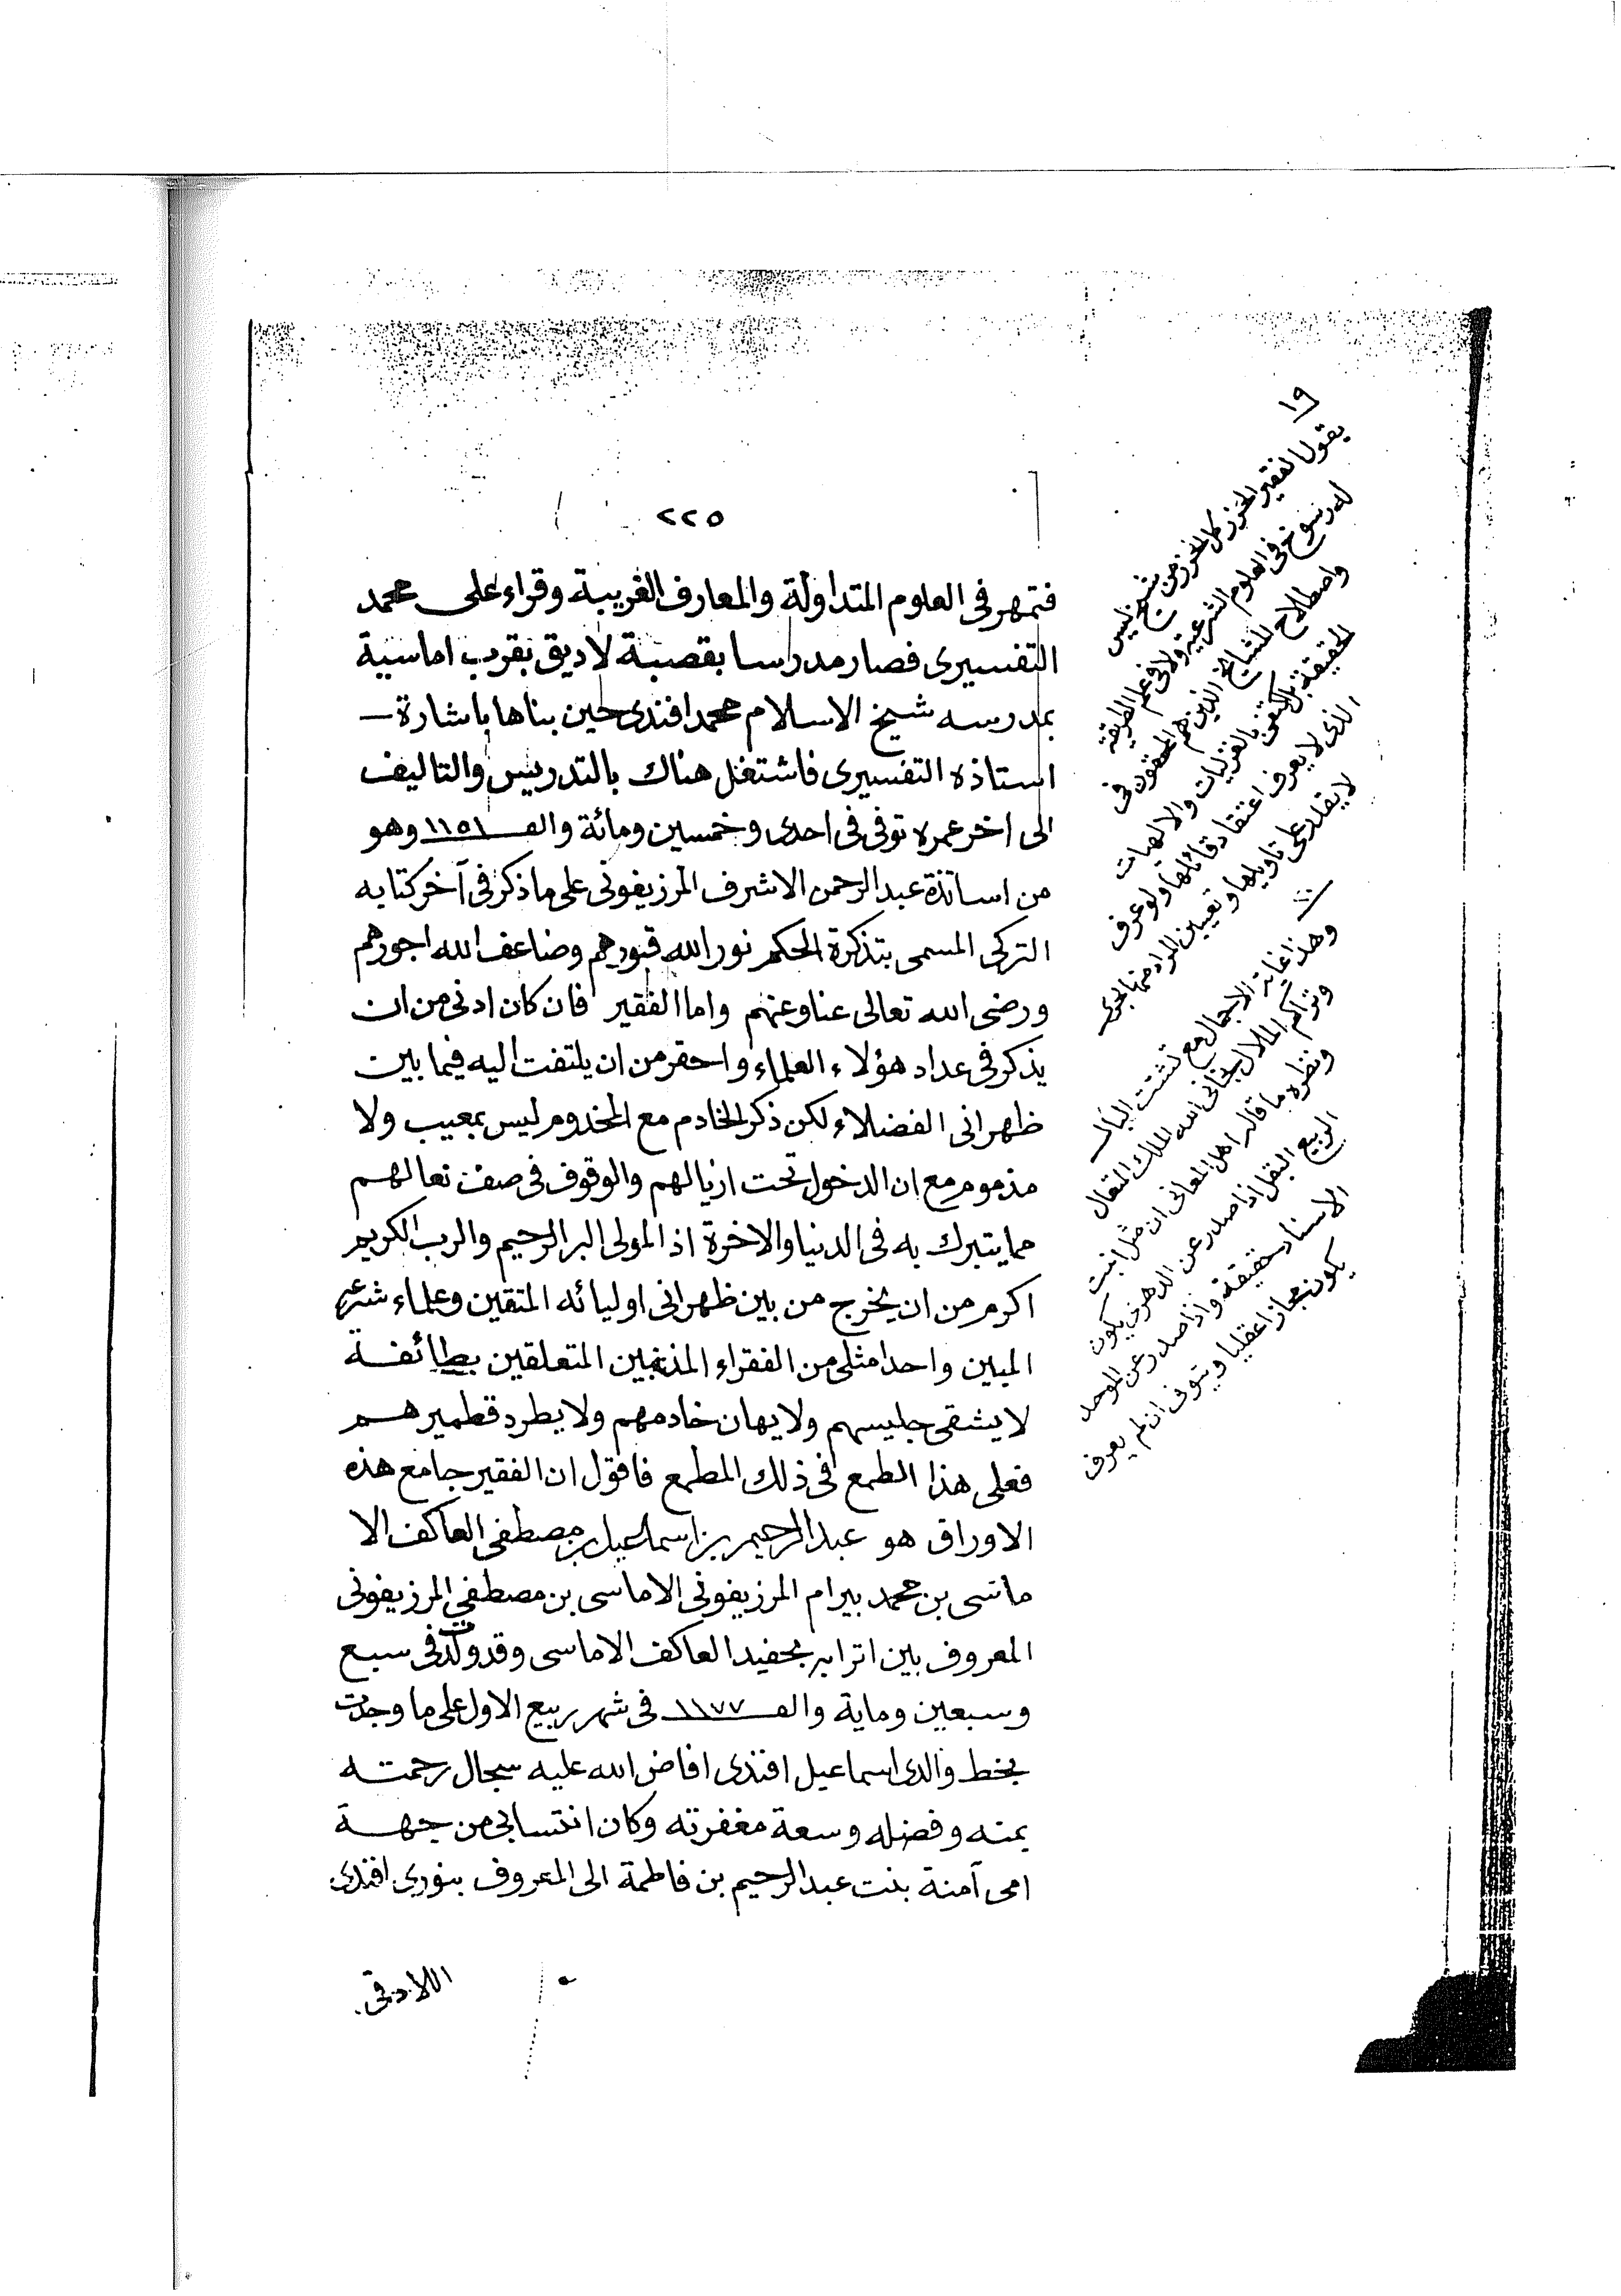 ٢٢٥
فتمهر فى العلوم المتداولة والمعارف الغريبة وقراء على محمد
التفسيرى فصار مدرسا بقصبة لاديق بقرب اماسية
بمدرسه شيخ الاسلام محمد افندى حين بناها باشارة
استاذه التفسيرى فاشتغل هناك بالتدريس والتاليف
الى اخر عمره توفى فى احدى وخمسين ومائة والف ١١٥١ وهو
من اساتذة عبد الرحمن الاشرف المرزيفونى على ما ذكر فى آخر كتابه
التركى المسمى بتذكرة الحكم نور الله قبورهم وضاعف الله اجورهم
ورضى الله تعالى عنا وعنهم واما الفقير فان كان ادنى من ان
يذكر فى عداد هؤلاء العلماء واحقر من ان يلتفت اليه فيما بين
ظهرانى الفضلاء لكن ذكر الخادم مع المخدوم ليس بمعيب ولا
مذموم مع ان الدخول تحت اذيالهم والوقوف فى صف نعالهم
مما يتبرك به فى الدنيا والاخرة اذ المولى البر الرحيم والرب الكريم
اكرم من ان يخرج من بين ظهرانى اوليائه المتقين وعلماء شرعه
المبين واحدا مثلى من الفقراء المذنبين المتعلقين بطائفة
لا يشقى جليسهم ولا يهان خادمهم ولا يطرد قطميرهم
فعلى هذا الطمع فى ذلك المطمع فاقول ان الفقير جامع هذه
الاوراق هو عبد الرحيم بن اسماعيل بن مصطفى العاكف الا
ماسى بن محمد بيرام المرزيفونى الاماسى بن مصطفى المرزيفونى
المعروف بين اترابه بحفيد العاكف الاماسى وقد ولدت فى سبع
وسبعين وماية والف ١١٧٧ فى شهر ربيع الاول على ما وجدت
بخط والدى اسماعيل افندى افاض الله عليه سجال رحمته
بمنه وفضله وسعة مغفرته وكان انتسابى من جهة
امى آمنة بنت عبد الرحيم بن فاطمة الى المعروف بنورى افندى
اللادقى
١٩
يقول الفقير المحرز كل المحرز من شيخ ليس
له رسوخ فى العلوم الشرعية ولا فى علم الطريقة
واصطلاح المشايخ الذين هم المحققون فى
الحقيقة بل اكتفى بالغزليات والالهيات
الذى لا يعرف اعتقاد قائلها ولو عرف
لا يقدر على تاويلها وتعيين المراد منها
وهذا غاية الاجمال مع تشتت البال
وتراكم الملال نجانى الله الملك المتعال
ونظره ما قاله اهل المعانى ان مثل انبت
الربيع البقل اذا صدر عن الدهرى يكون
الاسناد حقيقة واذا صدر عن الموحد
يكون مجازا عقليا ويتوقف ان لم يعرف